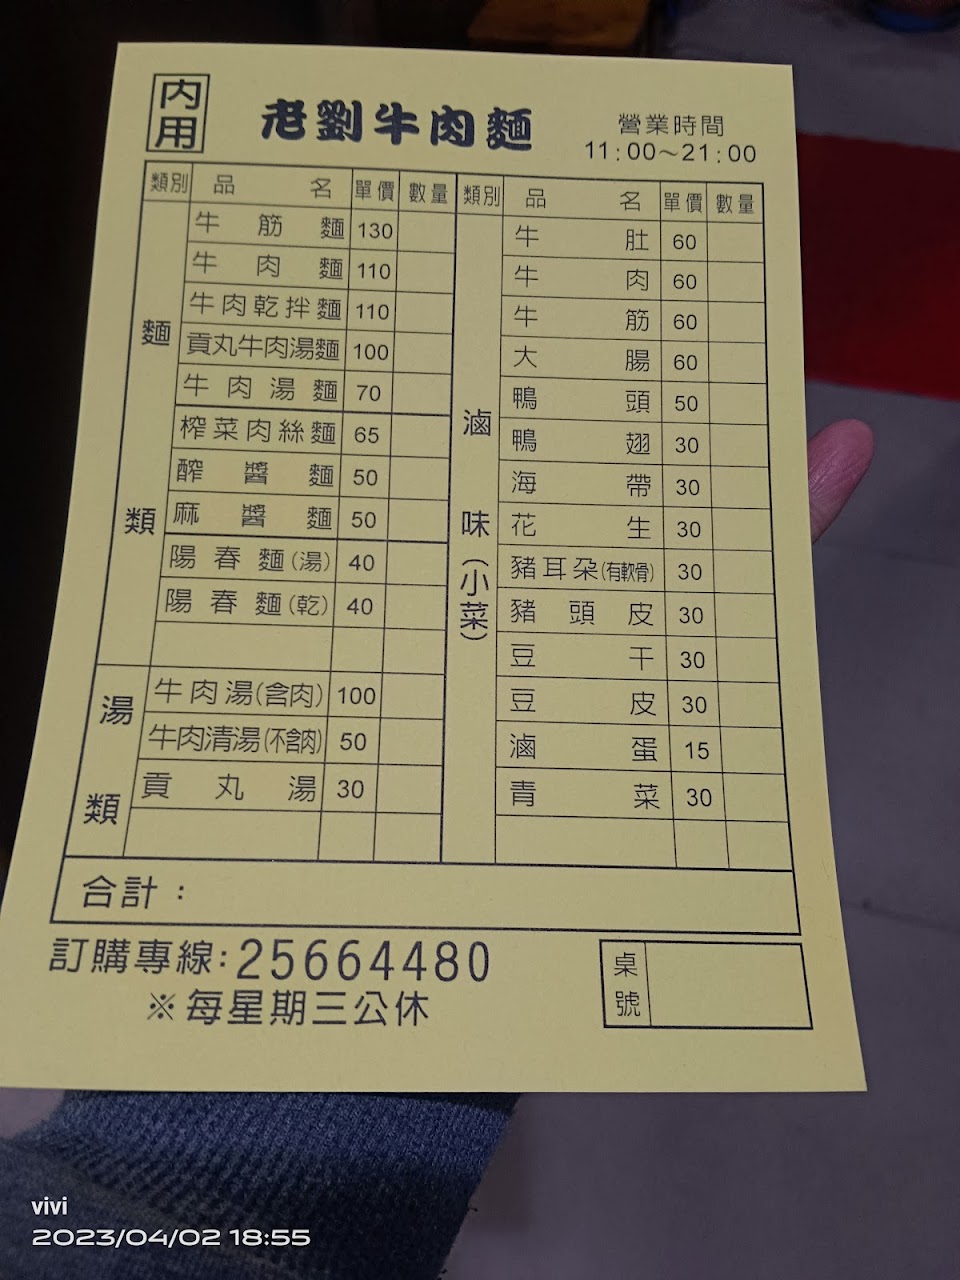 內用
老劉牛肉麵
營業時間
11:00～21:00
類別 品名 單價 數量 類別 品名 單價 數量
麵類
牛筋麵 130
牛肉麵 110
牛肉乾拌麵 110
貢丸牛肉湯麵 100
牛肉湯麵 70
榨菜肉絲麵 65
醡醬麵 50
麻醬麵 50
陽春麵(湯) 40
陽春麵(乾) 40
湯類
牛肉湯(含肉) 100
牛肉清湯(不含肉) 50
貢丸湯 30
滷味(小菜)
牛肚 60
牛肉 60
牛筋 60
大腸 60
鴨頭 50
鴨翅 30
海帶 30
花生 30
豬耳朵(有軟骨) 30
豬頭皮 30
豆干 30
豆皮 30
滷蛋 15
青菜 30
合計：
訂購專線:25664480
※每星期三公休
桌號
vivi
2023/04/02 18:55